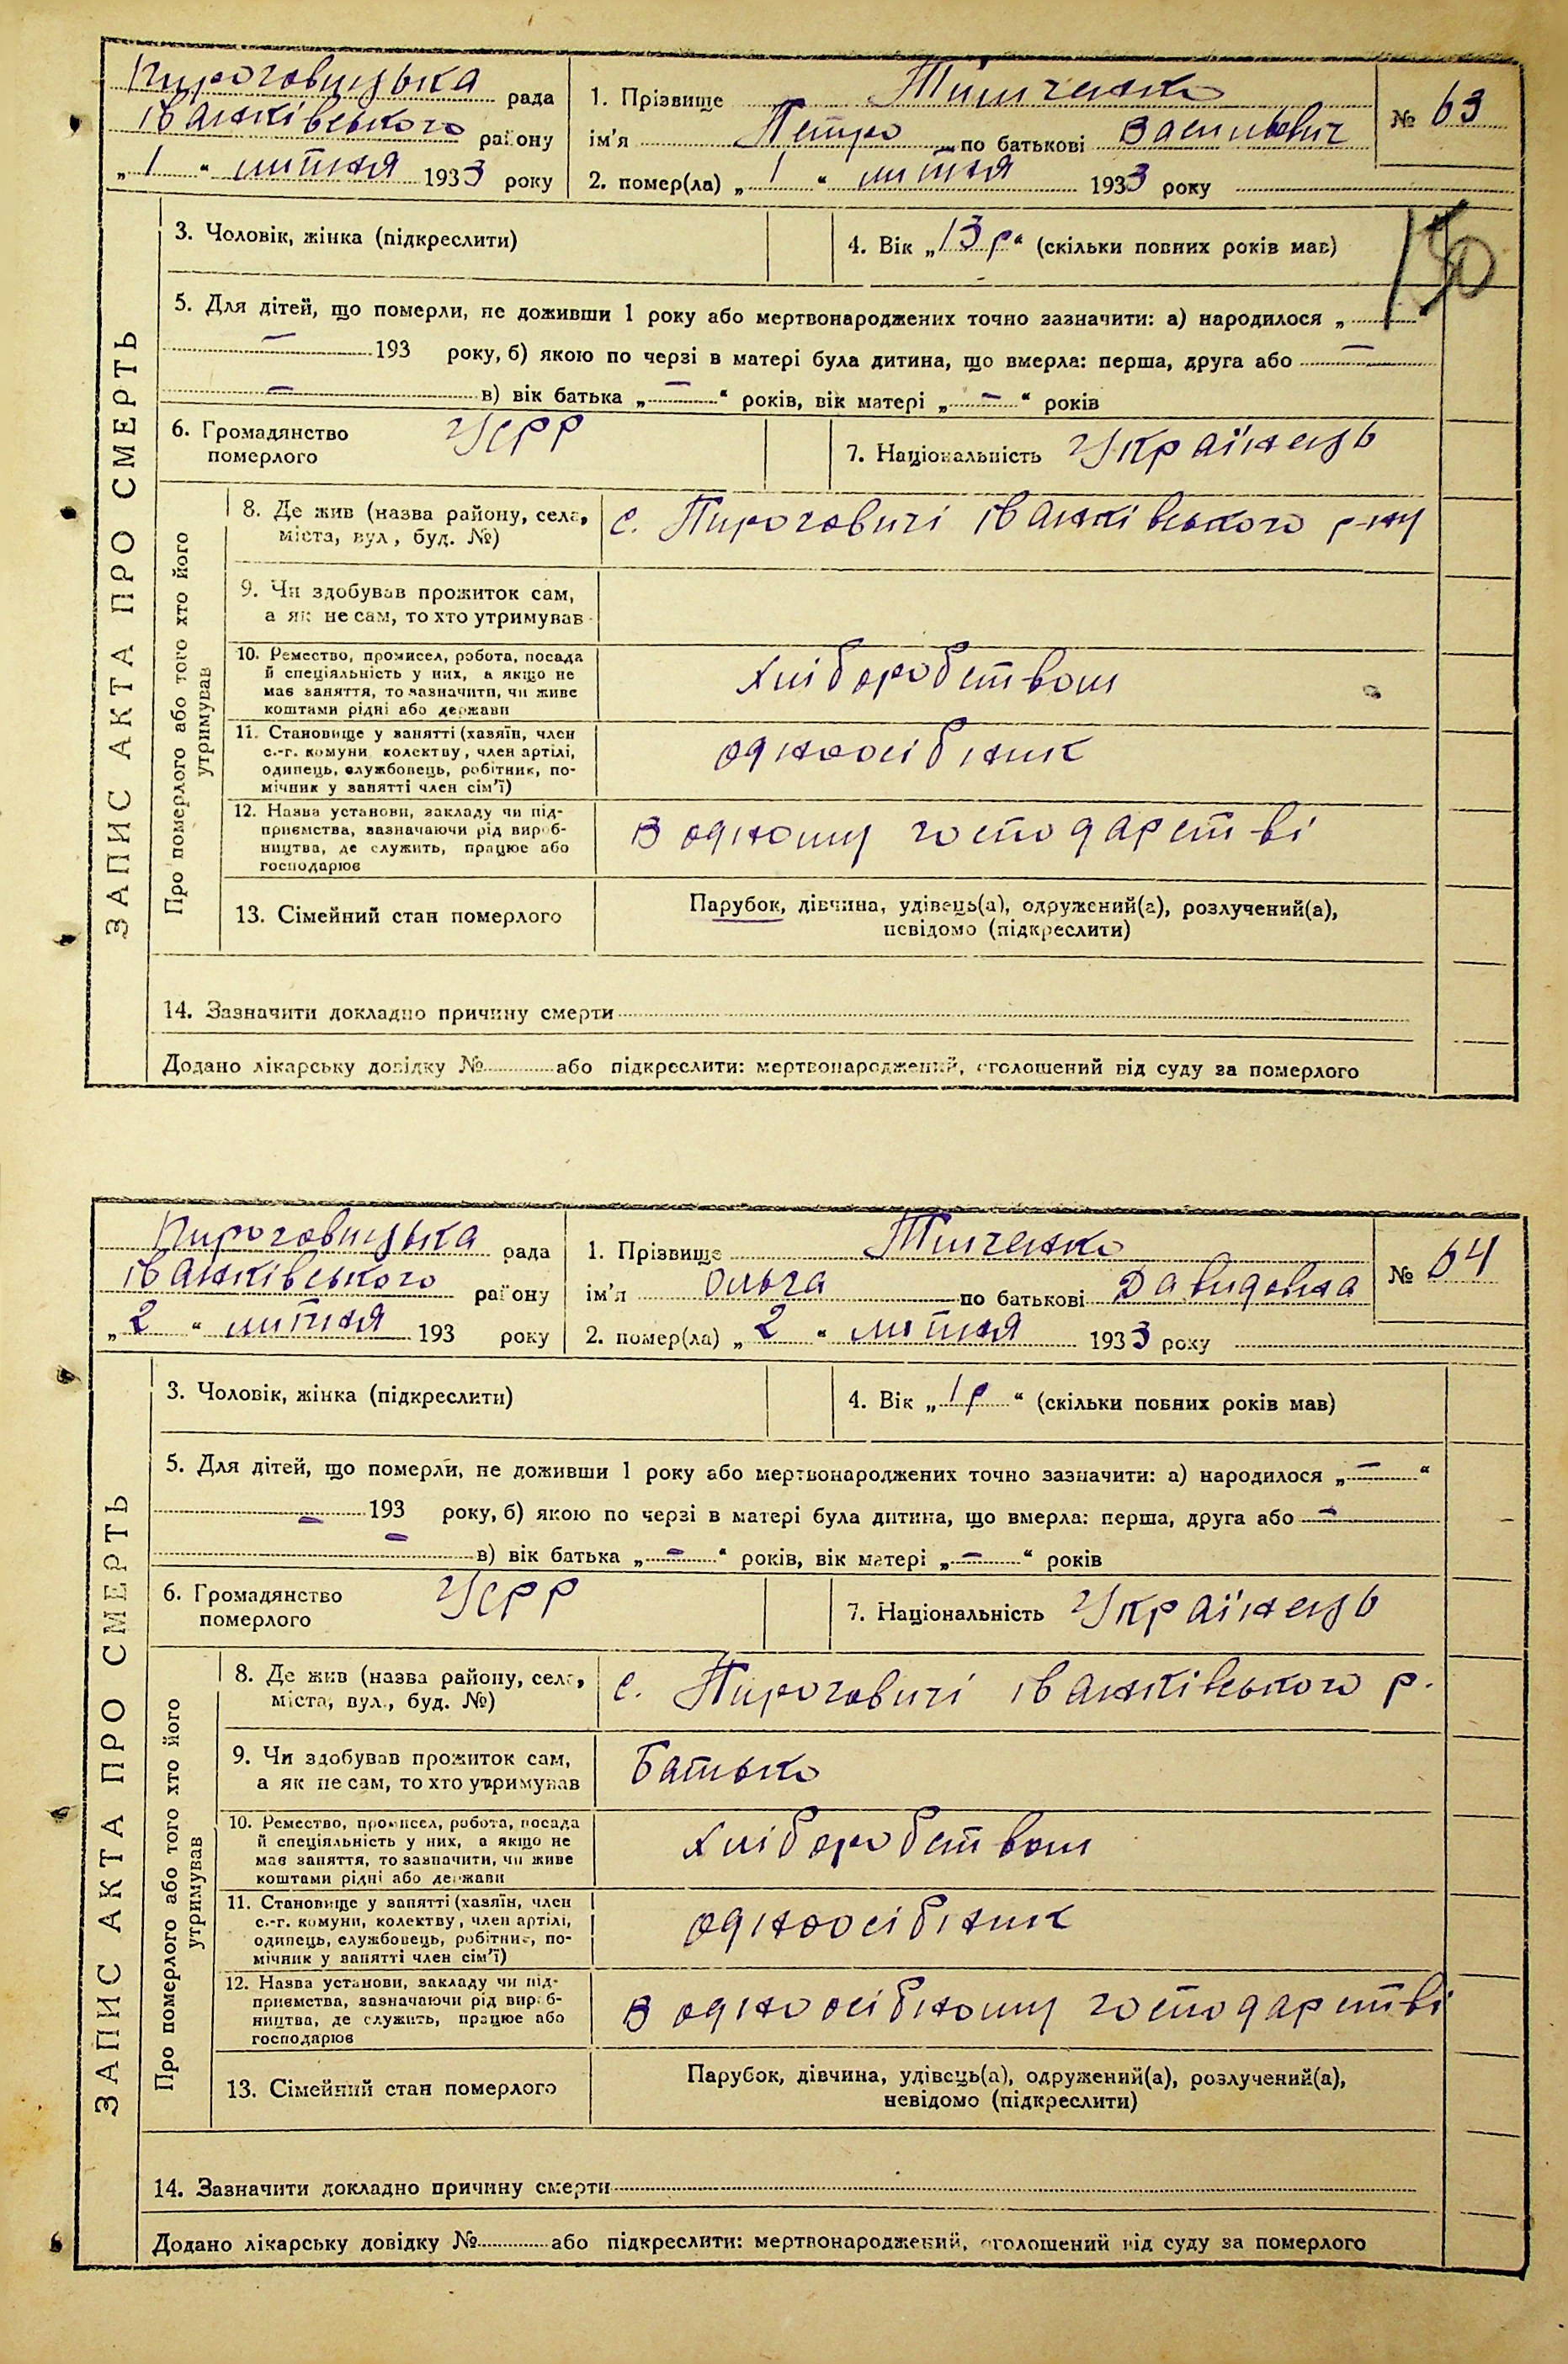 Пироговицька рада
Іванківського району
„ 1 “ липня 1933 року
1. Прізвище Тимченко
ім'я Петро по батькові Васильович
№ 63
2. помер(ла) „ 1 “ липня 1933 року
3. Чоловік, жінка (підкреслити)
4. Вік „13 р“ (скільки повних років мав)
150
5. Для дітей, що померли, не доживши 1 року або мертвонароджених точно зазначити: а) народилося „ —
— 193 року, б) якою по черзі в матері була дитина, що вмерла: перша, друга або —
— в) вік батька „ — “ років, вік матері „ — “ років
6. Громадянство померлого УСРР
7. Національність Українець
ЗАПИС АКТА ПРО СМЕРТЬ
Про померлого або того хто його утримував
8. Де жив (назва району, села,
міста, вул, буд. №)
с. Пироговичі Іванківського р-ну
9. Чи здобував прожиток сам,
а як не сам, то хто утримував
10. Ремество, промисел, робота, посада
й спеціяльність у них, а якщо не
має заняття, то зазначити, чи живе
коштами рідні або держави
хліборобством
11. Становище у занятті (хазяїн, член
с.-г. комуни колектву, член артілі,
одинець, службовець, робітник, по-
мічник у занятті член сім'ї)
одноосібник
12. Назва установи, закладу чи під-
приємства, зазначаючи рід вироб-
ництва, де служить, працює або
господарює
В одному господарстві
13. Сімейний стан померлого
Парубок, дівчина, удівець(а), одружений(а), розлучений(а),
невідомо (підкреслити)
14. Зазначити докладно причину смерти
Додано лікарську довідку № або підкреслити: мертвонароджений, оголошений від суду за померлого
Пироговицька рада
Іванківського району
„ 2 “ липня 193 року
1. Прізвище Тимченко
ім'я Ольга по батькові Давидовна
№ 64
2. помер(ла) „ 2 “ липня 1933 року
3. Чоловік, жінка (підкреслити)
4. Вік „ 1р “ (скільки повних років мав)
5. Для дітей, що померли, не доживши 1 року або мертвонароджених точно зазначити: а) народилося „ — “
— 193 року, б) якою по черзі в матері була дитина, що вмерла: перша, друга або —
— в) вік батька „ — “ років, вік матері „ — “ років
6. Громадянство померлого УСРР
7. Національність Українець
ЗАПИС АКТА ПРО СМЕРТЬ
Про померлого або того хто його утримував
8. Де жив (назва району, села,
міста, вул., буд. №)
с. Пироговичі Іванківського р.
9. Чи здобував прожиток сам,
а як не сам, то хто утримував
Батько
10. Ремество, промисел, робота, посада
й спеціяльність у них, а якщо не
має заняття, то зазначити, чи живе
коштами рідні або держави
хліборобством
11. Становище у занятті (хазяїн, член
с.-г. комуни, колектву, член артілі,
одинець, службовець, робітник, по-
мічник у занятті член сім'ї)
одноосібник
12. Назва установи, закладу чи під-
приємства, зазначаючи рід вироб-
ництва, де служить, працює або
господарює
В одноосібному господарстві
13. Сімейний стан померлого
Парубок, дівчина, удівець(а), одружений(а), розлучений(а),
невідомо (підкреслити)
14. Зазначити докладно причину смерти
Додано лікарську довідку № або підкреслити: мертвонароджений, оголошений від суду за померлого